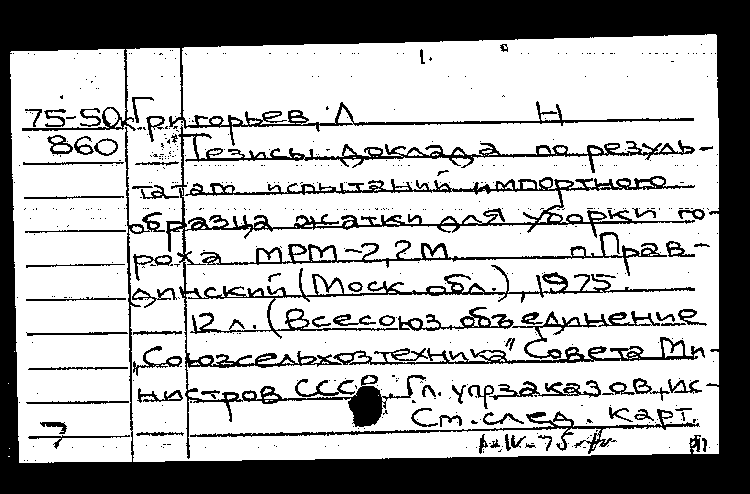 1.
75-50к Григорьев, Л Н
860 Тезисы доклада по резуль-
татам испытаний импортного
образца жатки для уборки го-
роха МРМ-2,2М. п.Прав-
динский (Моск. обл.), 1975.
12 л. (Всесоюз. объединение
"Союзсельхозтехника" Совета Ми-
нистров СССР. Гл. упр.заказов, ис-
7 См.след. карт.